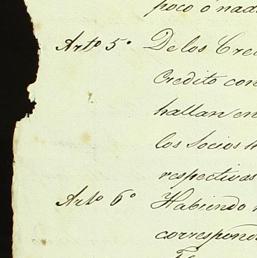 poco ó nada
Artº 5º De los Cre
Credito con
hallan en
los Socios
respectivas
Artº 6º Habiendo
correspon